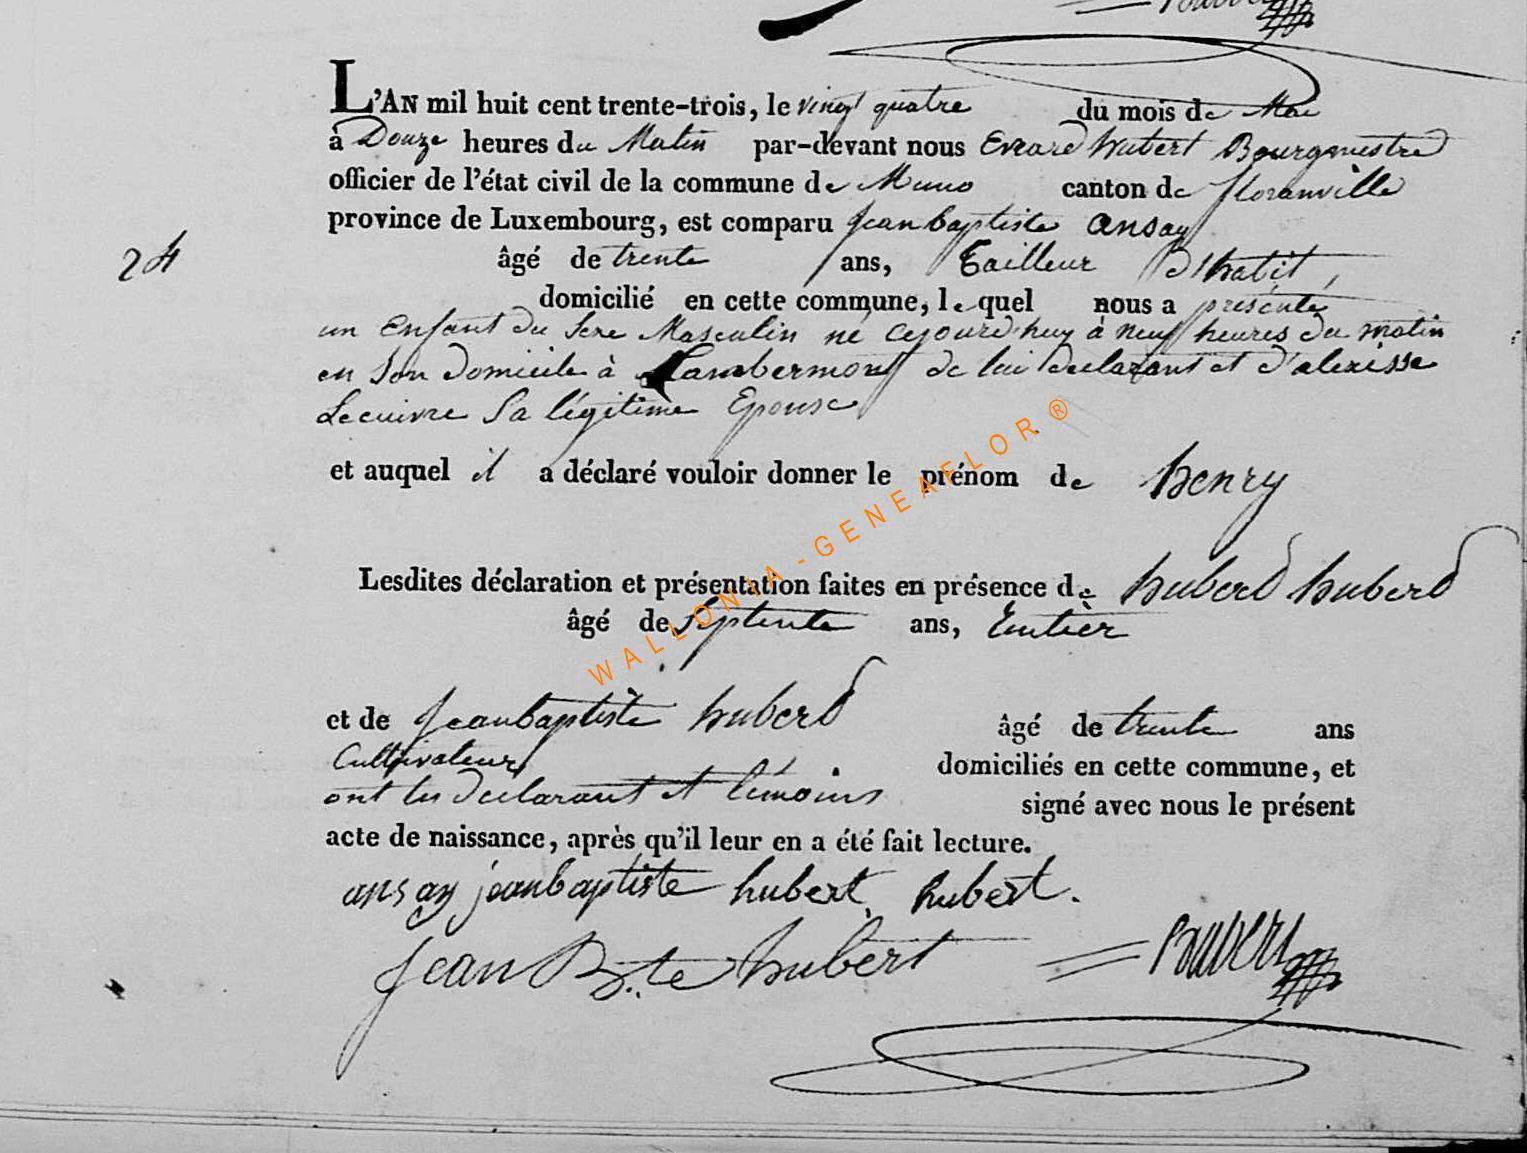 L'AN mil huit cent trente-trois, le vingt quatre du mois de Mai
à Douze heures du Matin par-devant nous Evrard hubert Bourgmestre
officier de l'état civil de la commune de Muno canton de floranville
province de Luxembourg, est comparu jean baptiste ansay
24
âgé de trente ans, Tailleur D'habit,
domicilié en cette commune, lequel nous a présenté
un Enfant du Sexe Masculin né cejourd'huy à neuf heures du matin
en Son domicile à Lambermont de lui declarant et d'alexisse
Lecuivre Sa légitime Epouse
et auquel il a déclaré vouloir donner le prénom de henry
Lesdites déclaration et présentation faites en présence de huberd huberd
âgé de Septente ans, Rentier
et de jeanbaptiste huberd âgé de trente ans
Cultivateur domiciliés en cette commune, et
ont les declarant et témoins signé avec nous le présent
acte de naissance, après qu'il leur en a été fait lecture.
ansay jeanbaptiste hubert hubert.
jean B.te hubert
WALLONIA-GENEAFLOR®